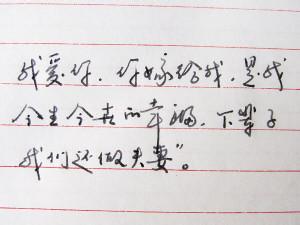 我爱你，你嫁给我，是我
今生今世的幸福，下辈子
我们还做夫妻”。